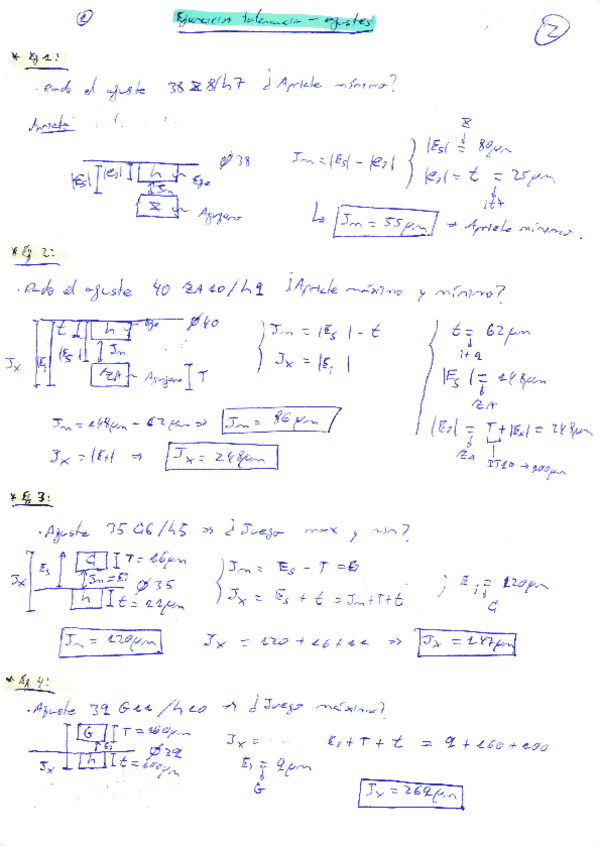 Ejercicios tolerancia - ajustes
2
* Ej 1:
. Dado el ajuste 38 X8/h7 ¿Apriete mínimo?
Apriete
|Es| |es| h Eje Ø38
Jm
X Agujero
Jm = |Es| - |es|
X
|Es| = 80µm
|es| = t = 25µm
it7
↳ Jm = 55µm → Apriete mínimo.
* Ej 2:
. Dado el ajuste 40 ZA10/h9 ¿Apriete máximo y mínimo?
Jx |Ei| t |Es| h Eje Ø40
Jm
ZA Agujero T
Jm = |Es| - t
Jx = |Ei|
t = 62µm
it9
|Es| = 148µm
ZA
|Ei| = T + |Es| = 248µm
ZA IT10 → 100µm
Jm = 148µm - 62µm => Jm = 86µm
Jx = |Ei| => Jx = 248µm
* Ej 3:
. Ajuste 35 G6/h5 => ¿Juego max y min?
Jx Es G T = 16µm
Jm = Ei Ø35
h t = 11µm
Jm = Es - T = Ei
Jx = Es + t = Jm + T + t
; Ei = 120µm
G
Jm = 120µm Jx = 120 + 16 + 11 => Jx = 147µm
* Ej 4:
. Ajuste 39 G11/h10 → ¿Juego máximo?
G T = 160µm
Ei Ø39
Jx h t = 100µm
Jx = Ei + T + t = 9 + 160 + 100
Ei = 9µm
G
Jx = 269µm